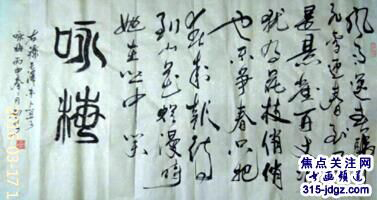 风雨送春归
飞雪迎春到已
是悬崖百丈冰
犹有花枝俏俏
也不争春只把
春来报待
到山花烂漫时
她在丛中笑
咏梅
右录毛泽东卜算子
咏梅丙申
焦点关注网
书画频道
315-jdgz.com